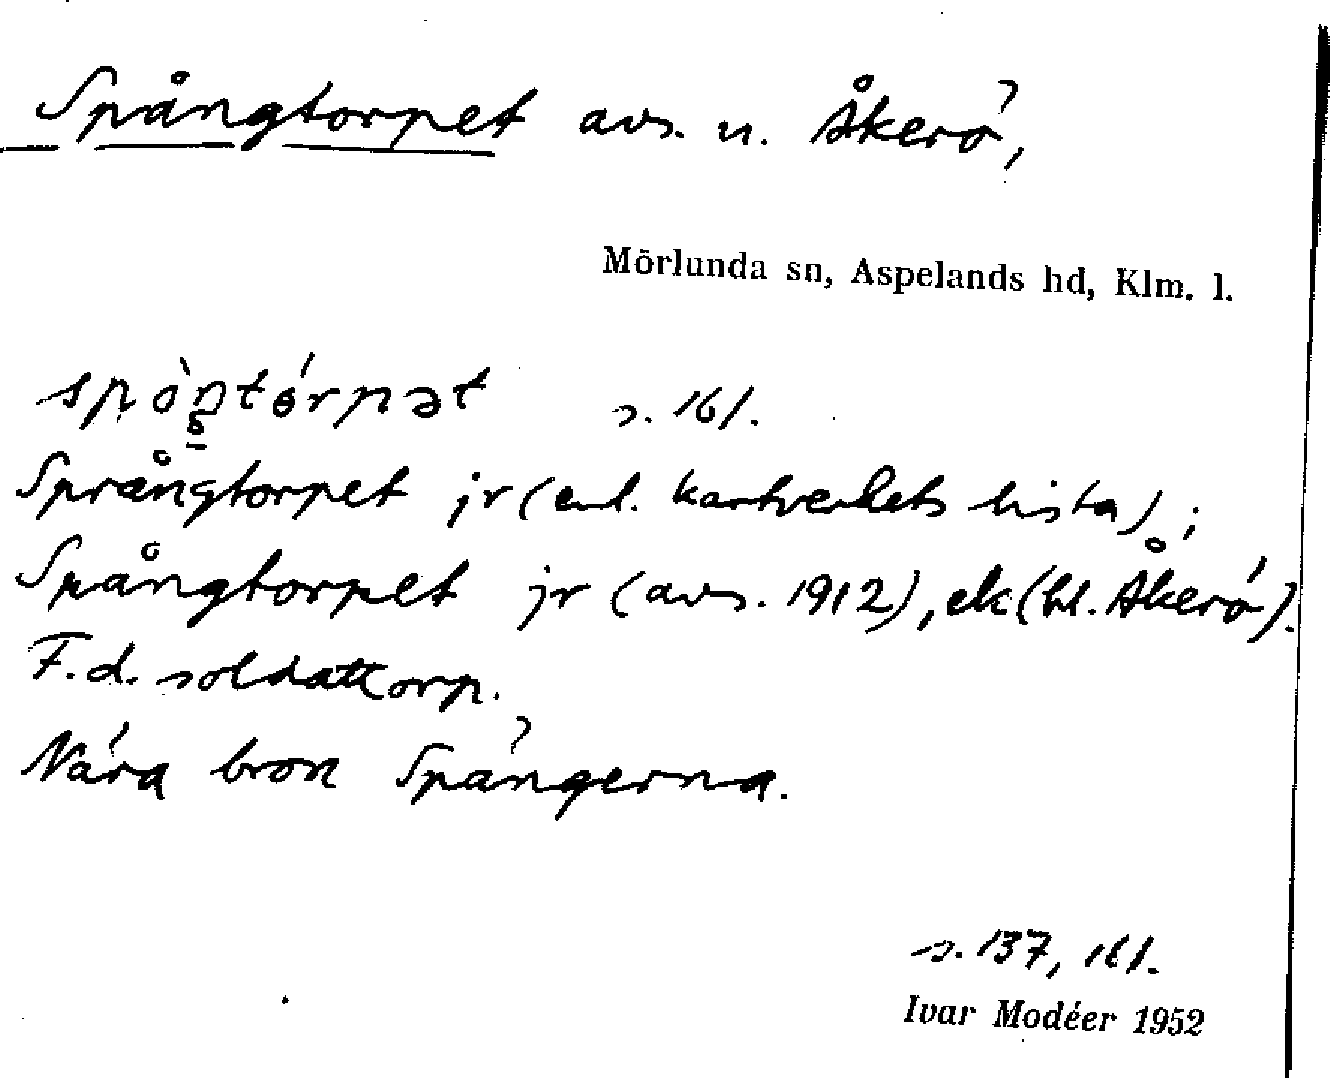 Spångtorpet avs. u. Åkerö,
Mörlunda sn, Aspelands hd, Klm. l.
s. 161.
Språngtorpet jr (enl. kartverkets lista);
Spångtorpet jr (avs. 1912), ek (bl. Åkerö).
F.d. soldattorp.
Nära bron Spångerna.
s. 137, 161.
Ivar Modéer 1952